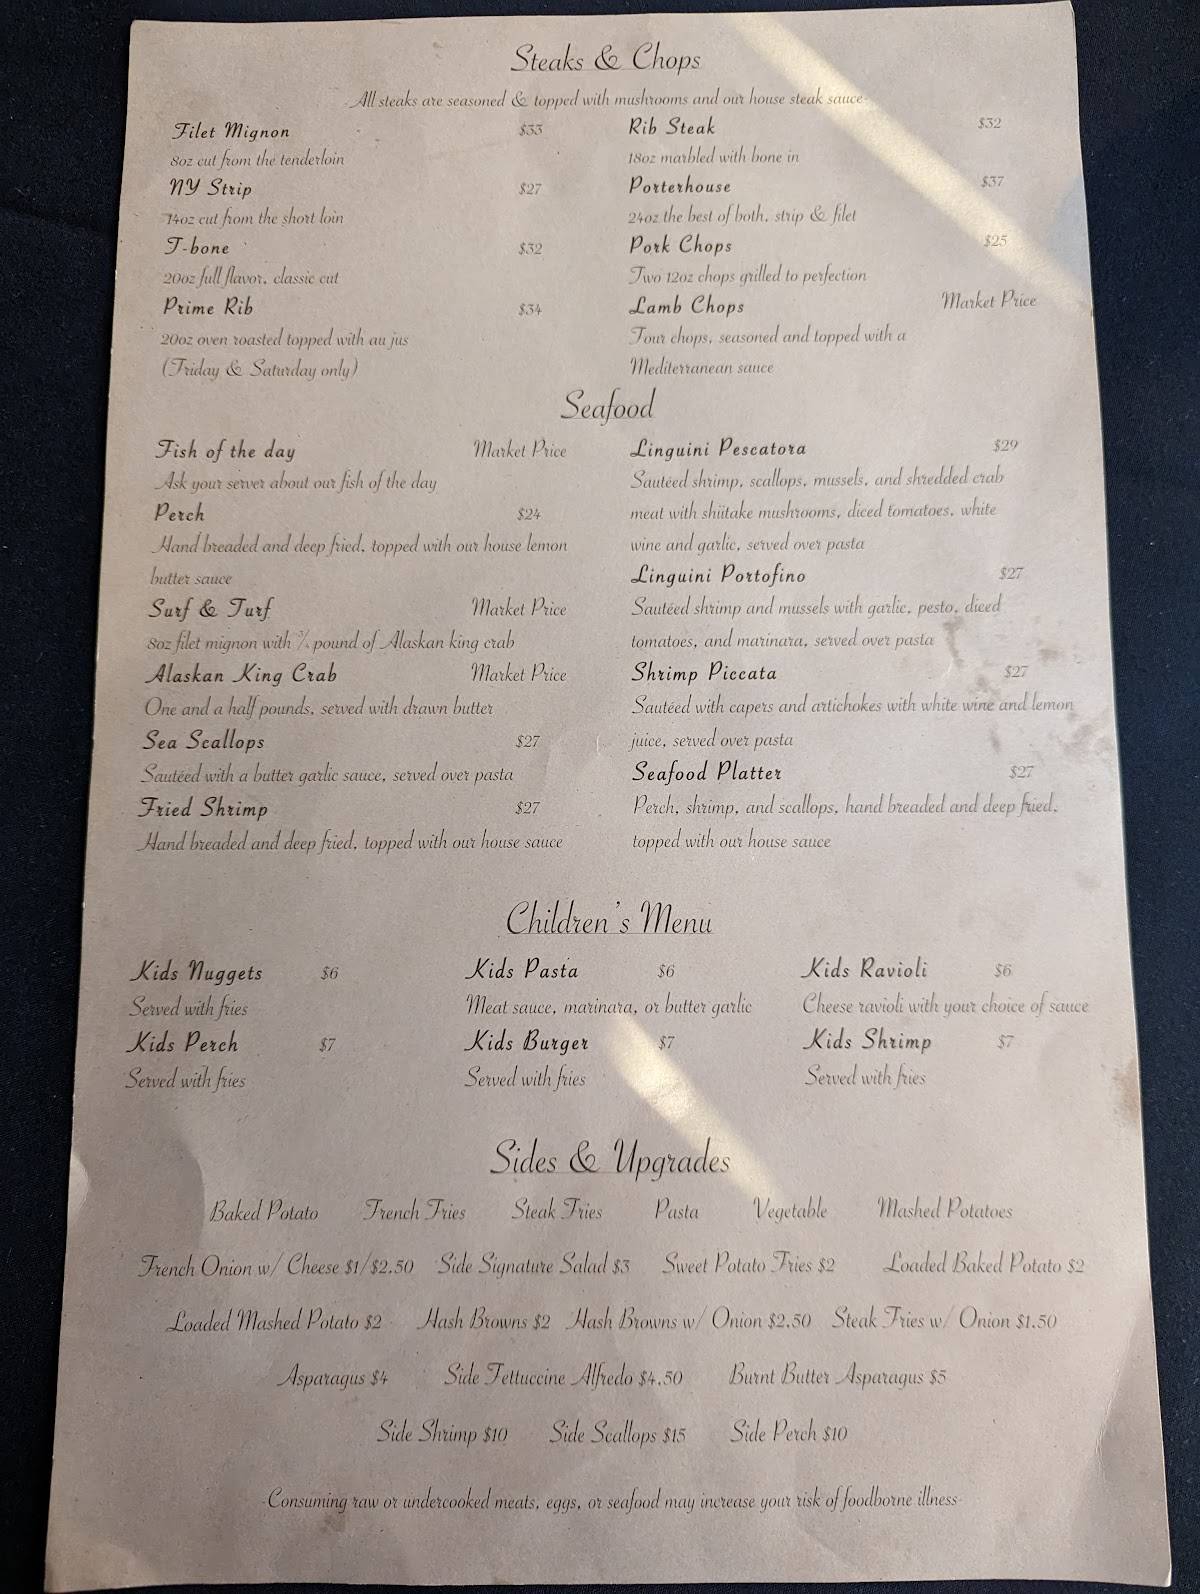 Steaks & Chops
-All steaks are seasoned & topped with mushrooms and our house steak sauce-
Filet Mignon $33
8oz cut from the tenderloin
NY Strip $27
14oz cut from the short loin
T-bone $32
20oz full flavor, classic cut
Prime Rib $34
20oz oven roasted topped with au jus
(Friday & Saturday only)
Rib Steak $32
18oz marbled with bone in
Porterhouse $37
24oz the best of both, strip & filet
Pork Chops $25
Two 12oz chops grilled to perfection
Lamb Chops Market Price
Four chops, seasoned and topped with a
Mediterranean sauce
Seafood
Fish of the day Market Price
Ask your server about our fish of the day
Perch $24
Hand breaded and deep fried, topped with our house lemon
butter sauce
Surf & Turf Market Price
8oz filet mignon with ¾ pound of Alaskan king crab
Alaskan King Crab Market Price
One and a half pounds, served with drawn butter
Sea Scallops $27
Sautéed with a butter garlic sauce, served over pasta
Fried Shrimp $27
Hand breaded and deep fried, topped with our house sauce
Linguini Pescatora $29
Sautéed shrimp, scallops, mussels, and shredded crab
meat with shiitake mushrooms, diced tomatoes, white
wine and garlic, served over pasta
Linguini Portofino $27
Sautéed shrimp and mussels with garlic, pesto, diced
tomatoes, and marinara, served over pasta
Shrimp Piccata $27
Sautéed with capers and artichokes with white wine and lemon
juice, served over pasta
Seafood Platter $27
Perch, shrimp, and scallops, hand breaded and deep fried,
topped with our house sauce
Children's Menu
Kids Nuggets $6 Kids Pasta $6 Kids Ravioli $6
Served with fries Meat sauce, marinara, or butter garlic Cheese ravioli with your choice of sauce
Kids Perch $7 Kids Burger $7 Kids Shrimp $7
Served with fries Served with fries Served with fries
Sides & Upgrades
Baked Potato French Fries Steak Fries Pasta Vegetable Mashed Potatoes
French Onion w/ Cheese $1/$2.50 Side Signature Salad $3 Sweet Potato Fries $2 Loaded Baked Potato $2
Loaded Mashed Potato $2 Hash Browns $2 Hash Browns w/ Onion $2.50 Steak Fries w/ Onion $1.50
Asparagus $4 Side Fettuccine Alfredo $4.50 Burnt Butter Asparagus $5
Side Shrimp $10 Side Scallops $15 Side Perch $10
-Consuming raw or undercooked meats, eggs, or seafood may increase your risk of foodborne illness-